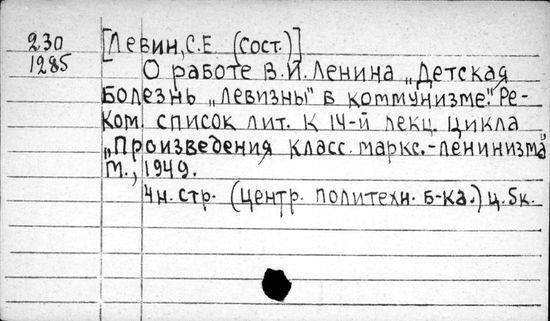 230
1285
[Левин, С.Е (сост.)]
О работе В.И. Ленина „Детская
болезнь „левизны" в коммунизме". Ре-
ком. список лит. к 14-й лекц. цикла
„Произведения класс. маркс.-ленинизма"
М., 1949.
4н. стр. (центр. политехн. б-ка.) ц. 5к.